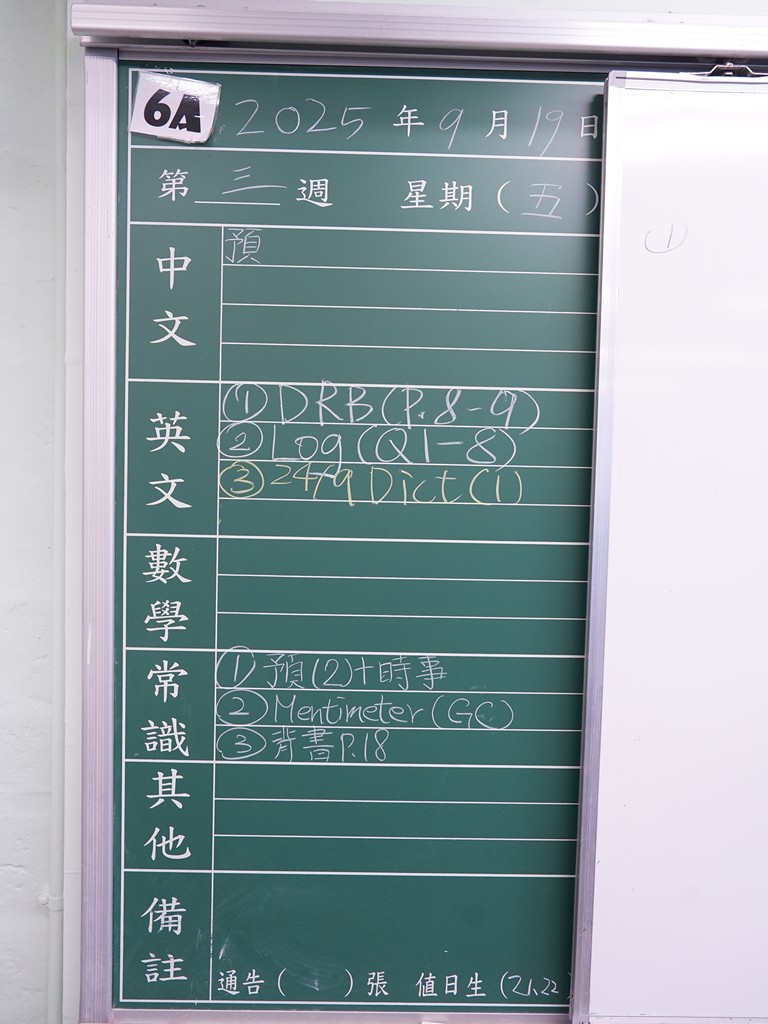 6A
2025年9月19日
第三週 星期(五)
中文
預
英文
①DRB(P.8-9)
②Log(Q1-8)
③24/9 Dict(1)
數學
常識
①預(2)+時事
②Mentimeter(GC)
③背書P.18
其他
備註
通告( )張 值日生(21,22)
①